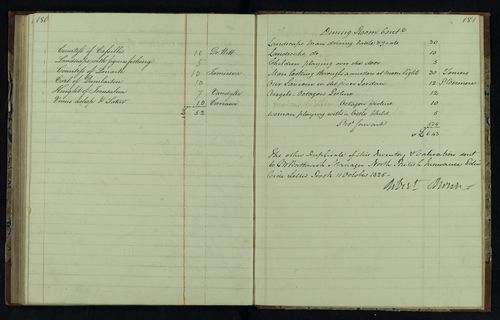 180
Countess of Cassillis 10 De Witt
Landscape with figures fishing 5
Countess of Lenark 10 Jamieson
Earl of Dumbarton 10
Knight of Jerusalem 7 Vandyke
Venus & Satyr 10
£ 52
181
Dining Room Contd
Landscape man driving cattle & goats 20
Landscape do. 10
Children playing over the door 5
Man looking through a window at moon light 20
Our Saviour in the River Jordan 12
Angels. Octagon Picture 12
Octagon picture 10
woman playing with a little Child 5
£
The other Duplicate of this Inventory & Valuation sent
to Manager North British Insurance
Vide Letter Book 11 October 1826